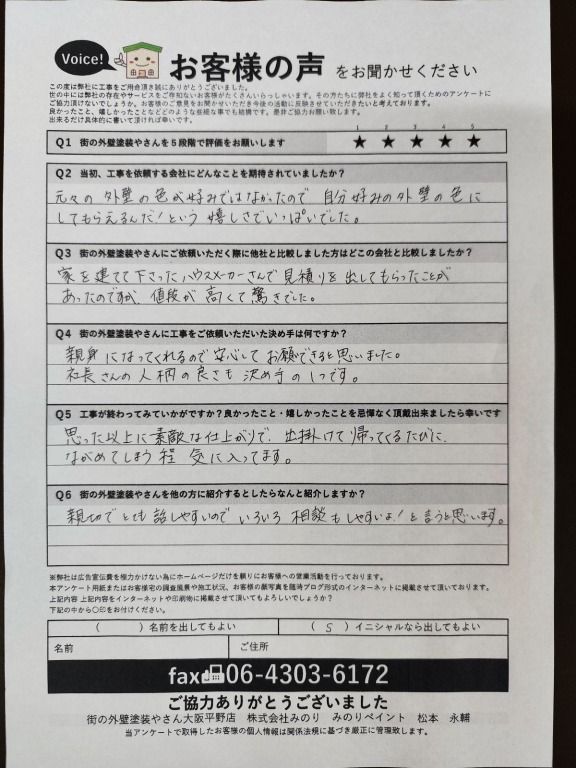 Voice!
お客様の声 をお聞かせください
この度は弊社に工事をご用命頂き誠にありがとうございました。
世の中には弊社の存在やサービスをご存知ないお客様がたくさんいらっしゃいます。その方たちに弊社をよく知って頂くためのアンケートに
ご協力頂けないでしょうか。お客様のご意見をお聞かせいただき今後の活動に反映させていただきたいと考えております。
良かったこと、嬉しかったことなどどのような些細な事でも結構です。是非ご協力お願い致します。
出来るだけ具体的に書いて頂ければ幸いです。
Q1 街の外壁塗装やさんを5段階で評価をお願いします
1 2 3 4 5
★ ★ ★ ★ ★
Q2 当初、工事を依頼する会社にどんなことを期待されていましたか?
元々の外壁の色が好みではなかったので 自分好みの外壁の色に
してもらえるんだ!という嬉しさでいっぱいでした。
Q3 街の外壁塗装やさんにご依頼いただく際に他社と比較しました方はどこの会社と比較しましたか?
家を建てて下さったハウスメーカーさんで見積りを出してもらったことが
あったのですが、値段が高くて驚きでした。
Q4 街の外壁塗装やさんに工事をご依頼いただいた決め手は何ですか?
親身になってくれるので安心してお願できると思いました。
社長さんの人柄の良さも決め手の1つです。
Q5 工事が終わってみていかがですか?良かったこと・嬉しかったことを忌憚なく頂戴出来ましたら幸いです
思った以上に素敵な仕上がりで、出掛けて帰ってくるたびに、
ながめてしまう程 気に入ってます。
Q6 街の外壁塗装やさんを他の方に紹介するとしたらなんと紹介しますか?
親切でとても話しやすいのでいろいろ相談もしやすいよ!と言うと思います。
※弊社は広告宣伝費を極力かけない為にホームページだけを頼りにお客様への営業活動を行っております。
本アンケート用紙またはお客様宅の調査風景や施工状況、お客様の顔写真を随時ブログ形式のインターネットに掲載させて頂いております。
上記内容 上記内容をインターネットや印刷物に掲載させて頂いてもよろしいでしょうか?
下記の中から〇印をお付けください。
( )名前を出してもよい ( S )イニシャルなら出してもよい
名前 ご住所
fax 06-4303-6172
ご協力ありがとうございました
街の外壁塗装やさん大阪平野店 株式会社みのり みのりペイント 松本 永輔
当アンケートで取得したお客様の個人情報は関係法規に基づき厳正に管理致します。